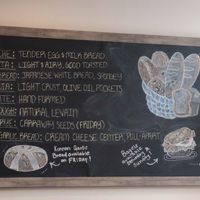 CHE: TENDER EGG & MILK BREAD
TA: LIGHT & AIRY, GOOD TOASTED
BREAD: JAPANESE WHITE BREAD, SPONGEY
IA: LIGHT CRUST, OLIVE OIL POCKETS
TE: HAND FORMED
OUGH: NATURAL LEVAIN
RYE: CARAWAY SEEDS (FRIDAY)
GARLIC BREAD: CREAM CHEESE CENTER, PULL-APART
Korean Garlic
Bread available
on FRIDAY!
Bagels
available
Saturday &
Sunday!